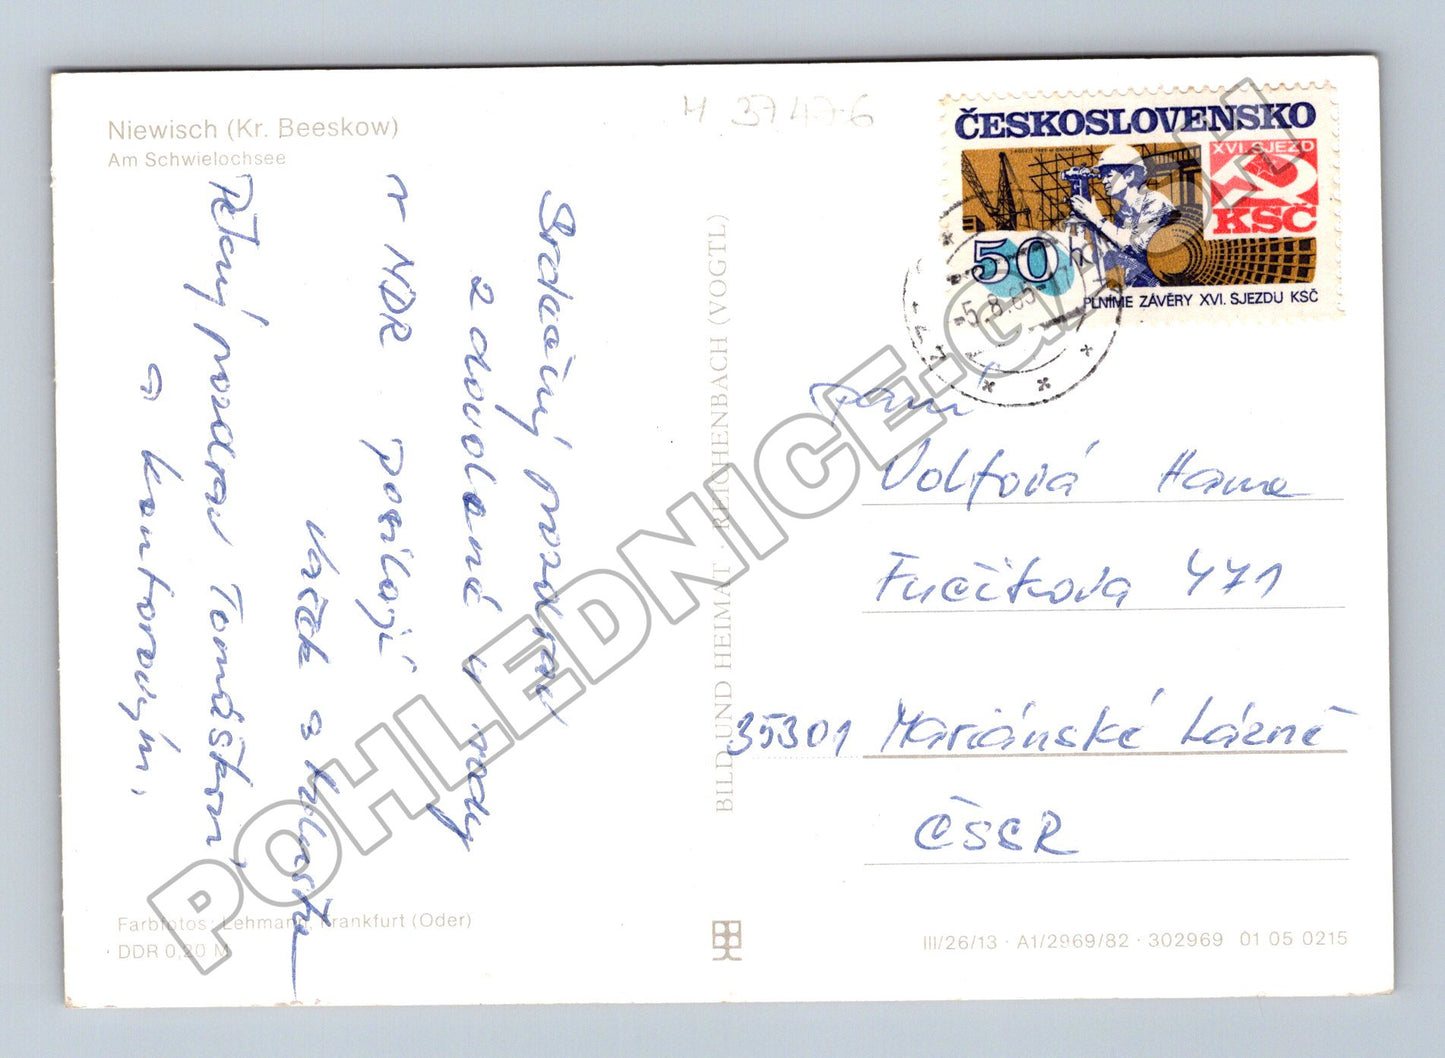 Niewisch (Kr. Beeskow)
Am Schwielochsee
H 3747-6
Srdečný pozdrav
z dovolené u vody
v NDR posílají
Vašek a Vlasta
Pěkný pozdrav Tomáškovi
a Kantorovým.
Farbfotos: Lehmann, Frankfurt (Oder)
· DDR 0,20 M
BILD UND HEIMAT · REICHENBACH (VOGTL)
ČESKOSLOVENSKO
XVI. SJEZD
KSČ
50 h
PLNÍME ZÁVĚRY XVI. SJEZDU KSČ
-5.8.85-17
Paní
Volfová Hana
Fučíkova 471
35301 Mariánské Lázně
ČSSR
III/26/13 · A1/2969/82 · 302969 01 05 0215
POHLEDNICE.GAPOH